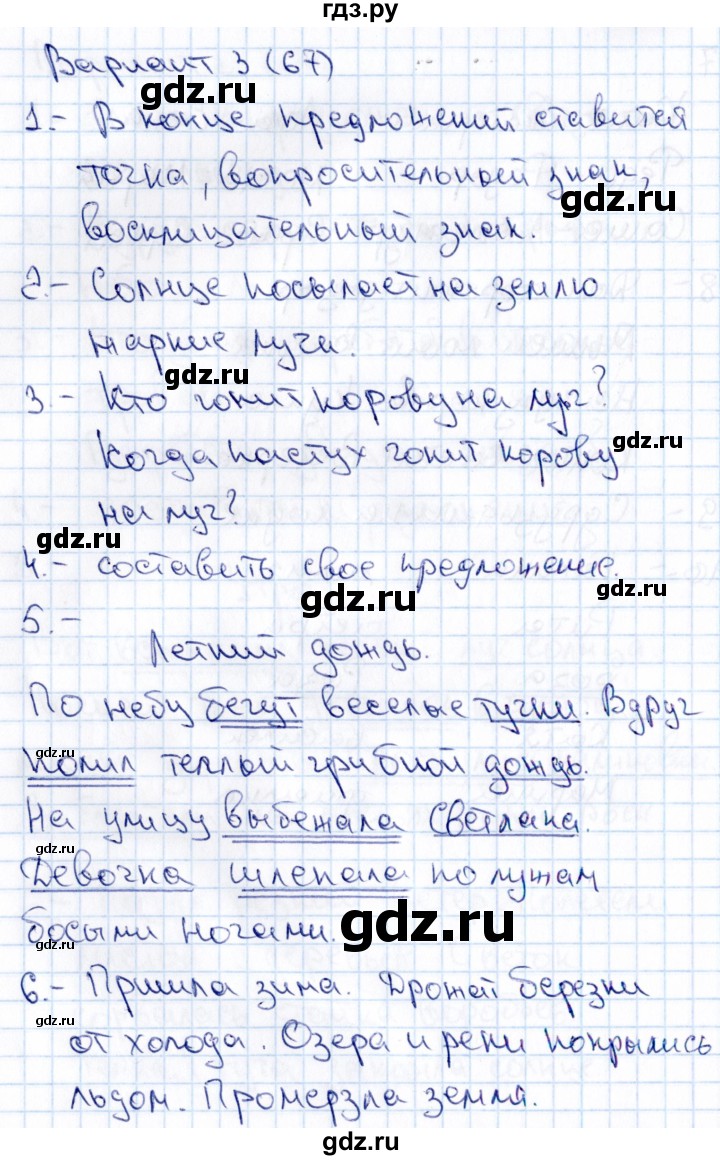 гдз.ру
Вариант 3 (67)
gdz.ru
1.- В конце предложений ставится
точка, вопросительный знак,
gdz.ru
восклицательный знак.
2.- Солнце посылает на землю
жаркие лучи.
gdz.ru
3.- Кто гонит корову на луг?
gdz.ru
Когда пастух гонит корову
на луг?
gdz.ru
4.- составить свое предложение.
gdz.ru
gdz.ru
5.-
Летний дождь.
По небу бегут веселые тучки. Вдруг
gdz.ru
полил теплый грибной дождь.
На улицу выбежала Светлана.
gdz.ru
Девочка шлепала по лужам
босыми ногами.
gdz.ru
6.- Пришла зима. Дрожат березки
gdz.ru
от холода. Озера и реки покрылись
льдом. Промерзла земля.
gdz.ru